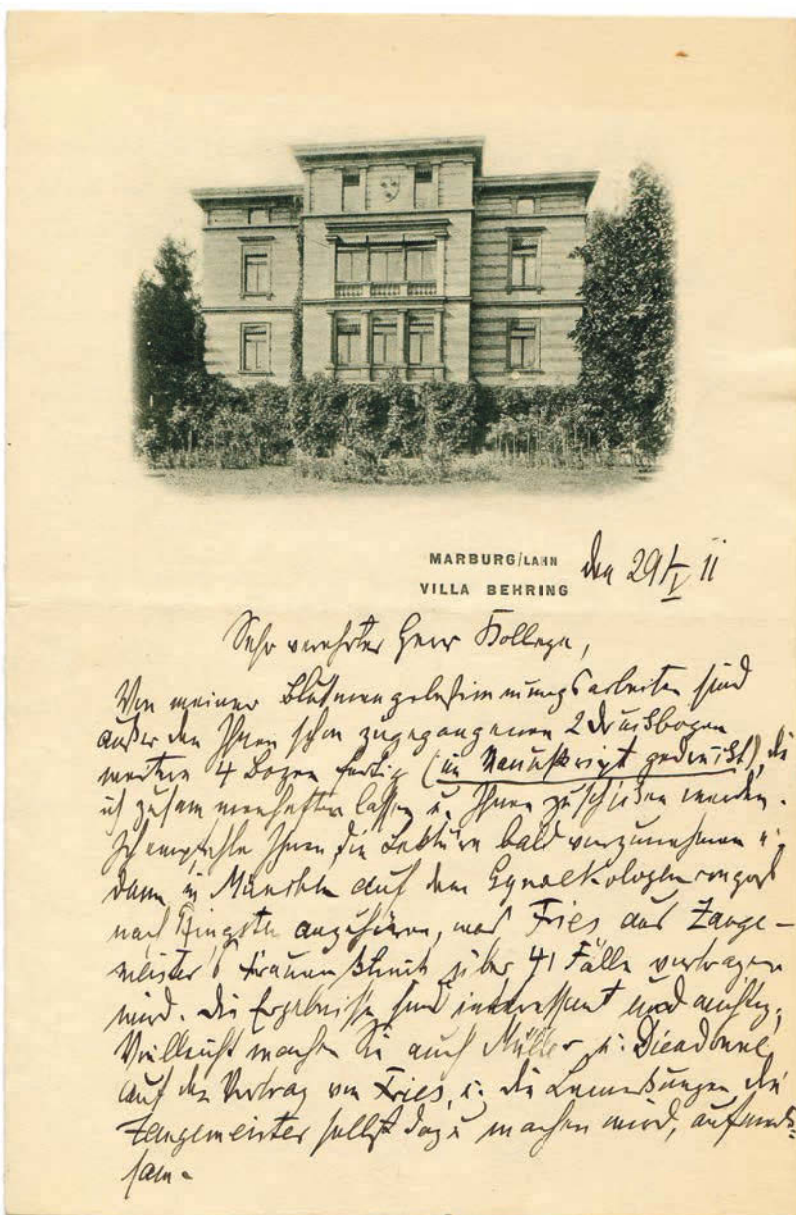 MARBURG/LAHN
VILLA BEHRING
den 29/V 11
Sehr verehrter Herr Kollege,
Von meiner Blutmengebestimmungsarbeiten sind
außer den Ihnen schon zugegangenen 2 Druckbogen
weitere 4 Bogen fertig (im Manuskript gedruckt), die
ich zusammenheften lassen u. Ihnen zuschicken werde.
Ich empfehle Ihnen, die Lektüre bald vorzunehmen u.
dann in München auf dem Gynaekologencongreß
nach Pfingsten anzuhören, was Fries aus Zange-
meister's Frauenklinik über 41 Fälle vortragen
wird. Die Ergebnisse sind interessant und wichtig.
Vielleicht machen Sie auch Müller u. Dieudonné
auf den Vortrag von Fries, u. die Bemerkungen, die
Zangemeister selbst dazu machen wird, aufmerk-
sam.